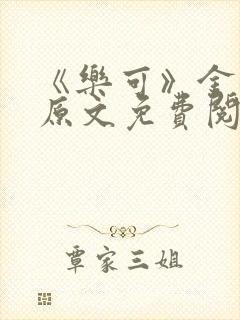 《樂可》金
原文免費閱
覃家三姐